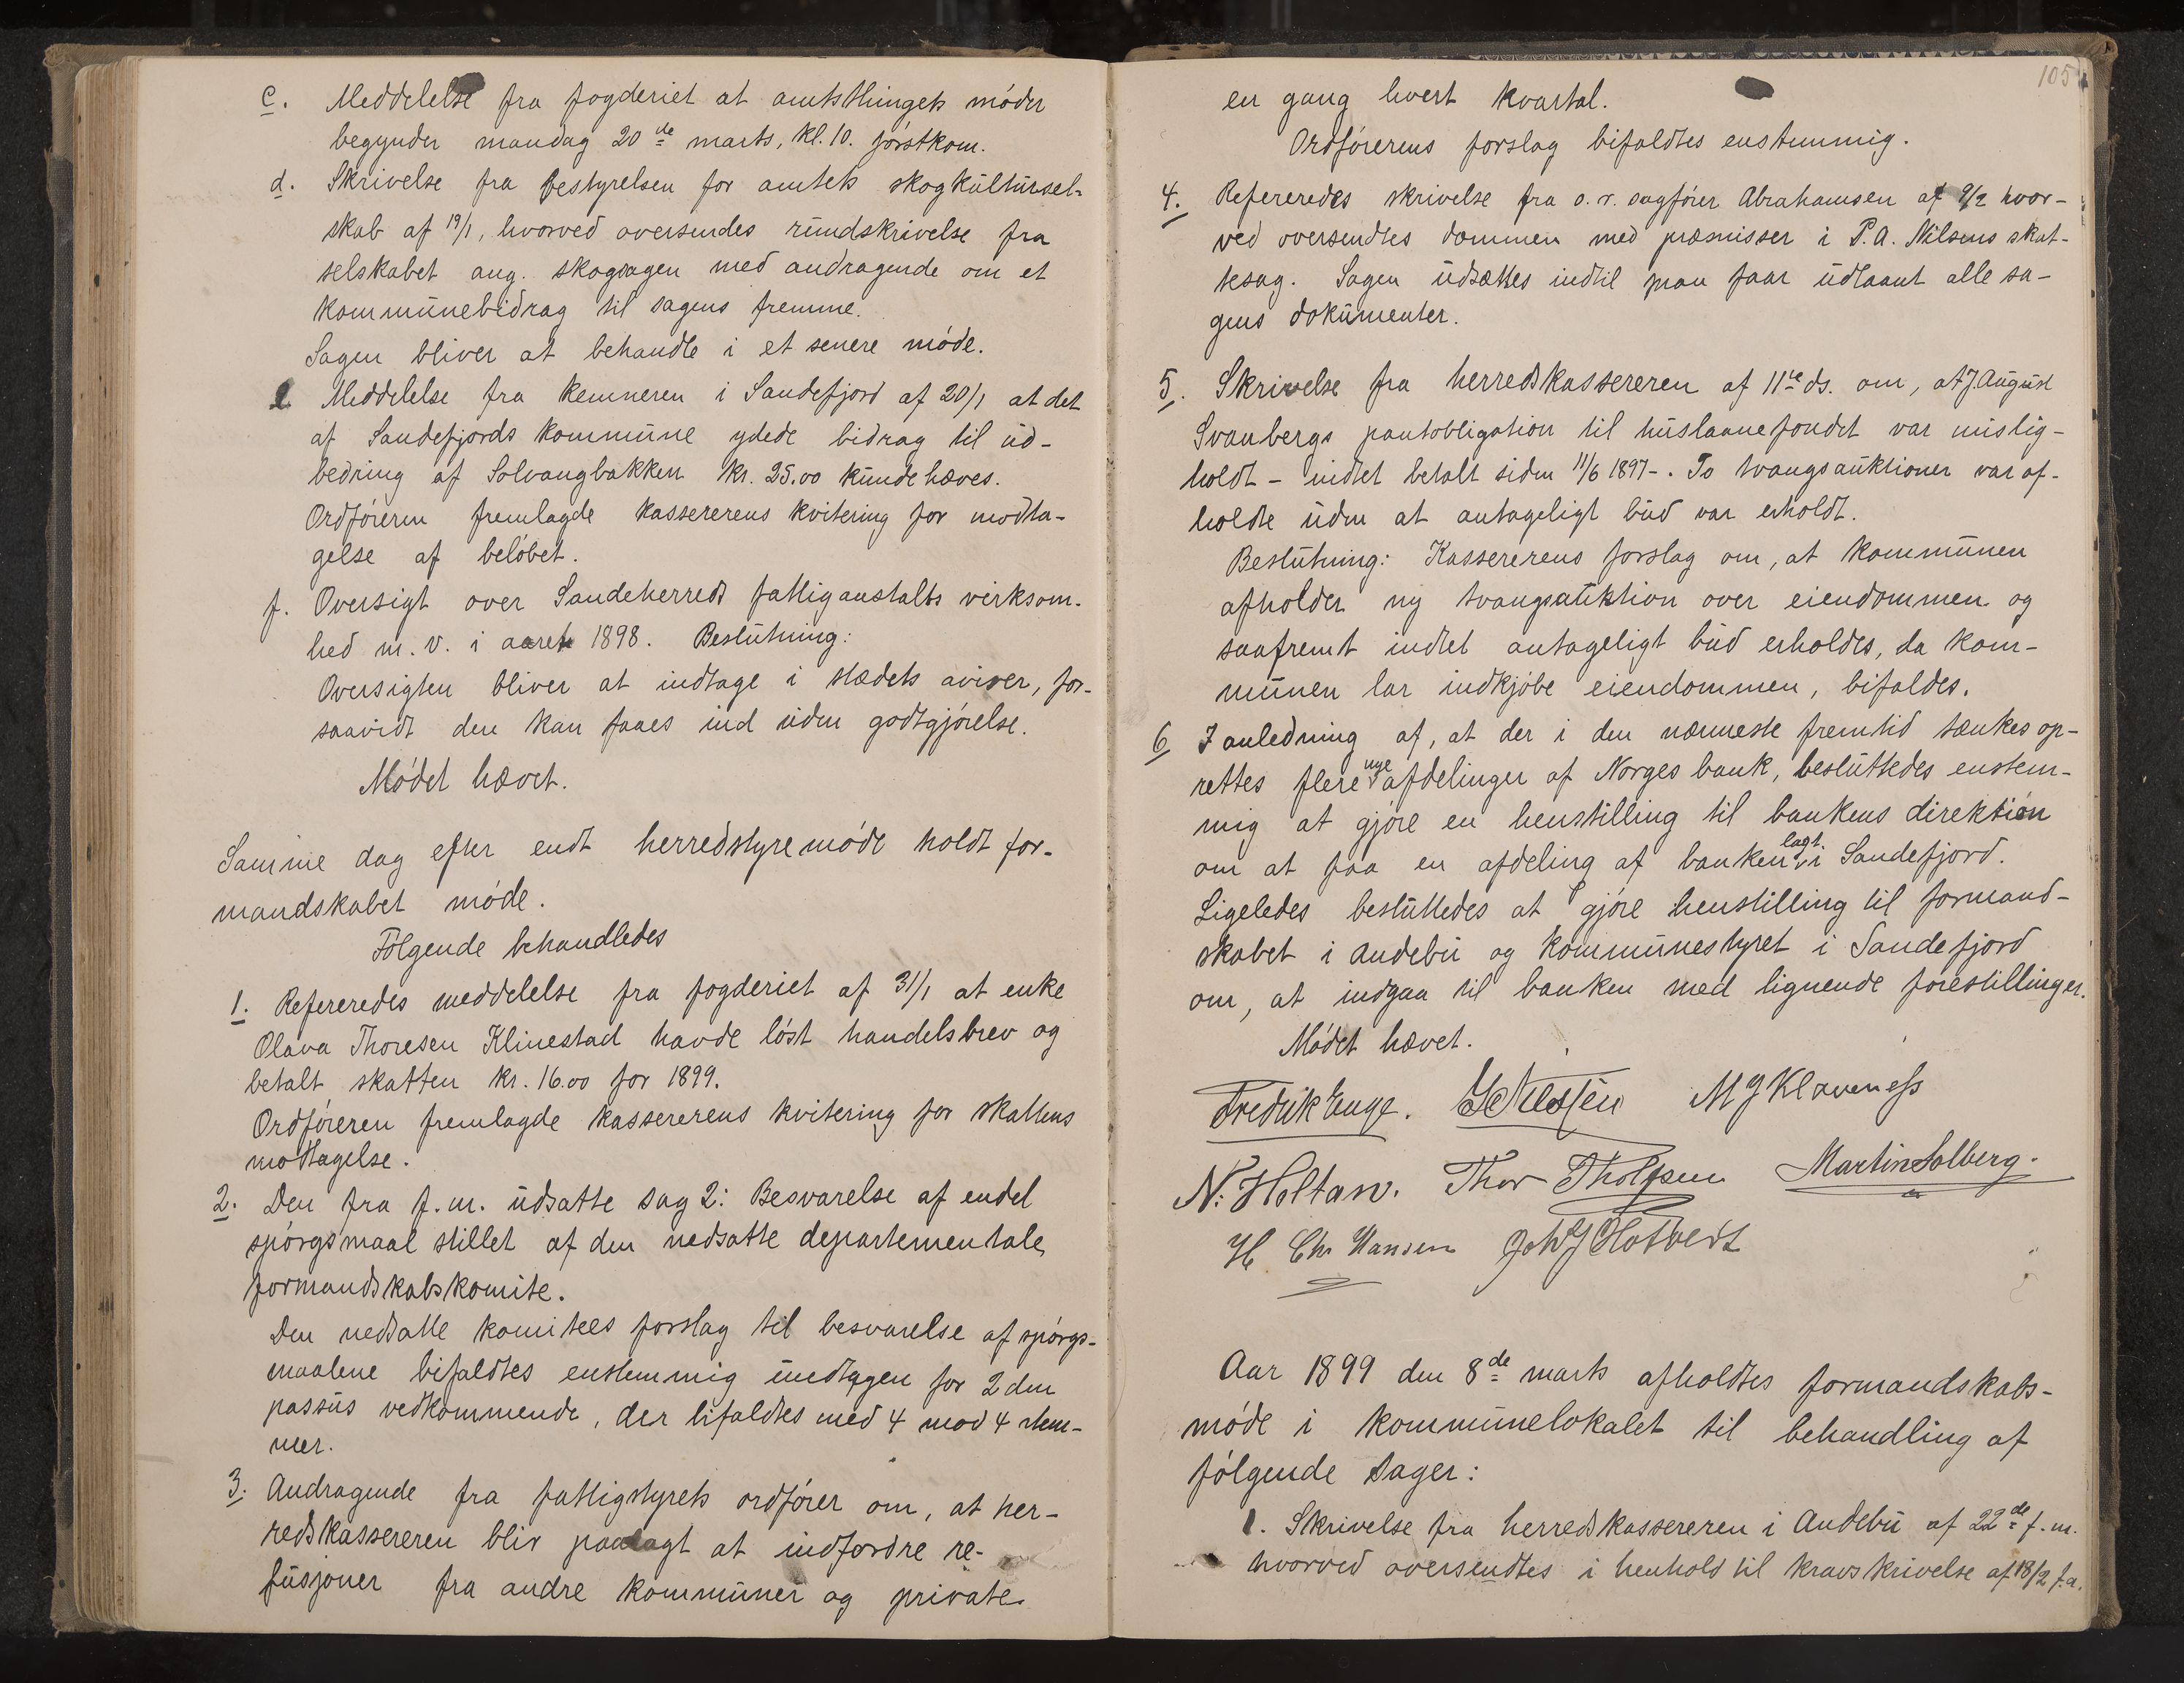 c. Meddelelse fra fogderiet at amtsthingets møder
begynder mandag 20de marts, kl. 10. førstkom.
d. Skrivelse fra bestyrelsen for amtets skogkultursel-
skab af 19/1, hvorved oversendes rundskrivelse fra
selskabet ang. skogsagen med andragende om et
kommunebidrag til sagens fremme.
Sagen bliver at behandle i et senere møde.
e Meddelelse fra kemneren i Sandefjord af 20/1 at det
af Sandefjords kommune ydede bidrag til ud-
bedring af Solvangbakken kr. 25.00 kunde hæves.
Ordføreren fremlagde kassererens kvitering for modta-
gelse af beløbet.
f. Oversigt over Sandeherreds fattiganstalts virksom-
hed m. v. i aaret 1898. Beslutning:
Oversigten bliver at indtage i stedets aviser, for-
saavidt den kan faaes ind uden godtgjørelse.
Mødet hævet.
Samme dag efter endt herredstyremøde holdt for-
mandskabet møde.
Følgende behandledes
1. Refereredes meddelelse fra fogderiet af 31/1 at enke
Olava Thoresen Klinestad havde løst handelsbrev og
betalt skatten kr. 16.00 for 1899.
Ordføreren fremlagde kassererens kvitering for skattens
modtagelse.
2. Den fra f. m. udsatte sag 2: Besvarelse af endel
spørgsmaal stillet af den nedsatte departementale
formandskabskomite.
Den nedsatte komitees forslag til besvarelse af spørgs-
maalene bifaldtes enstemmig undtagen for 2 den
passus vedkommende, der bifaldtes med 4 mod 4 stem-
mer.
3. Andragende fra fattigstyrets ordfører om, at her-
redskassereren blir paalagt at indfordre re-
fusjoner fra andre kommuner og private
105
en gang hvert kvartal.
Ordførerens forslag bifaldtes enstemmig.
4. Refereredes skrivelse fra o. r. sagfører Abrahamsen af 9/2 hvor-
ved oversendtes dommen med præmisser i P. A. Nilsens skat-
tesag. Sagen udsættes indtil man faar udlaant alle sa-
gens dokumenter.
5. Skrivelse fra herredskassereren af 11te ds. om, at J. August
Svanbergs pantobligation til huslaanefondet var mislig-
holdt - indtet betalt siden 11/6 1897-. To tvangsauktioner var af-
holdte uden at antageligt bud var erholdt.
Beslutning: Kassererens forslag om, at kommunen
afholder ny tvangsauktion over eiendommen og
saafremt indtet antageligt bud erholdes, da kom-
munen lar indkjøbe eiendommen, bifaldes.
6 I anledning af, at der i den nærmeste fremtid tænkes op-
rettes flere nye afdelinger af Norges bank, besluttedes enstem-
mig at gjøre en henstilling til bankens direktion
om at faa en afdeling af banken lagt i Sandefjord.
Ligeledes besluttedes at gjøre henstilling til formand-
skabet i Andebu og kommunestyret i Sandefjord
om, at indgaa til banken med lignende forestillinger.
Mødet hævet.
Fredrik Enge. M J Klaveness
N: Holtan. Thor Martin Solberg.
H. Chr Hansen
Aar 1899 den 8de marts afholdtes formandskabs-
møde i kommunelokalet til behandling af
følgende sager:
1. Skrivelse fra herredskassereren i Andebu af 22de f. m.
hvorved oversendtes i henhold til kravskrivelse af 18/2 f. a.